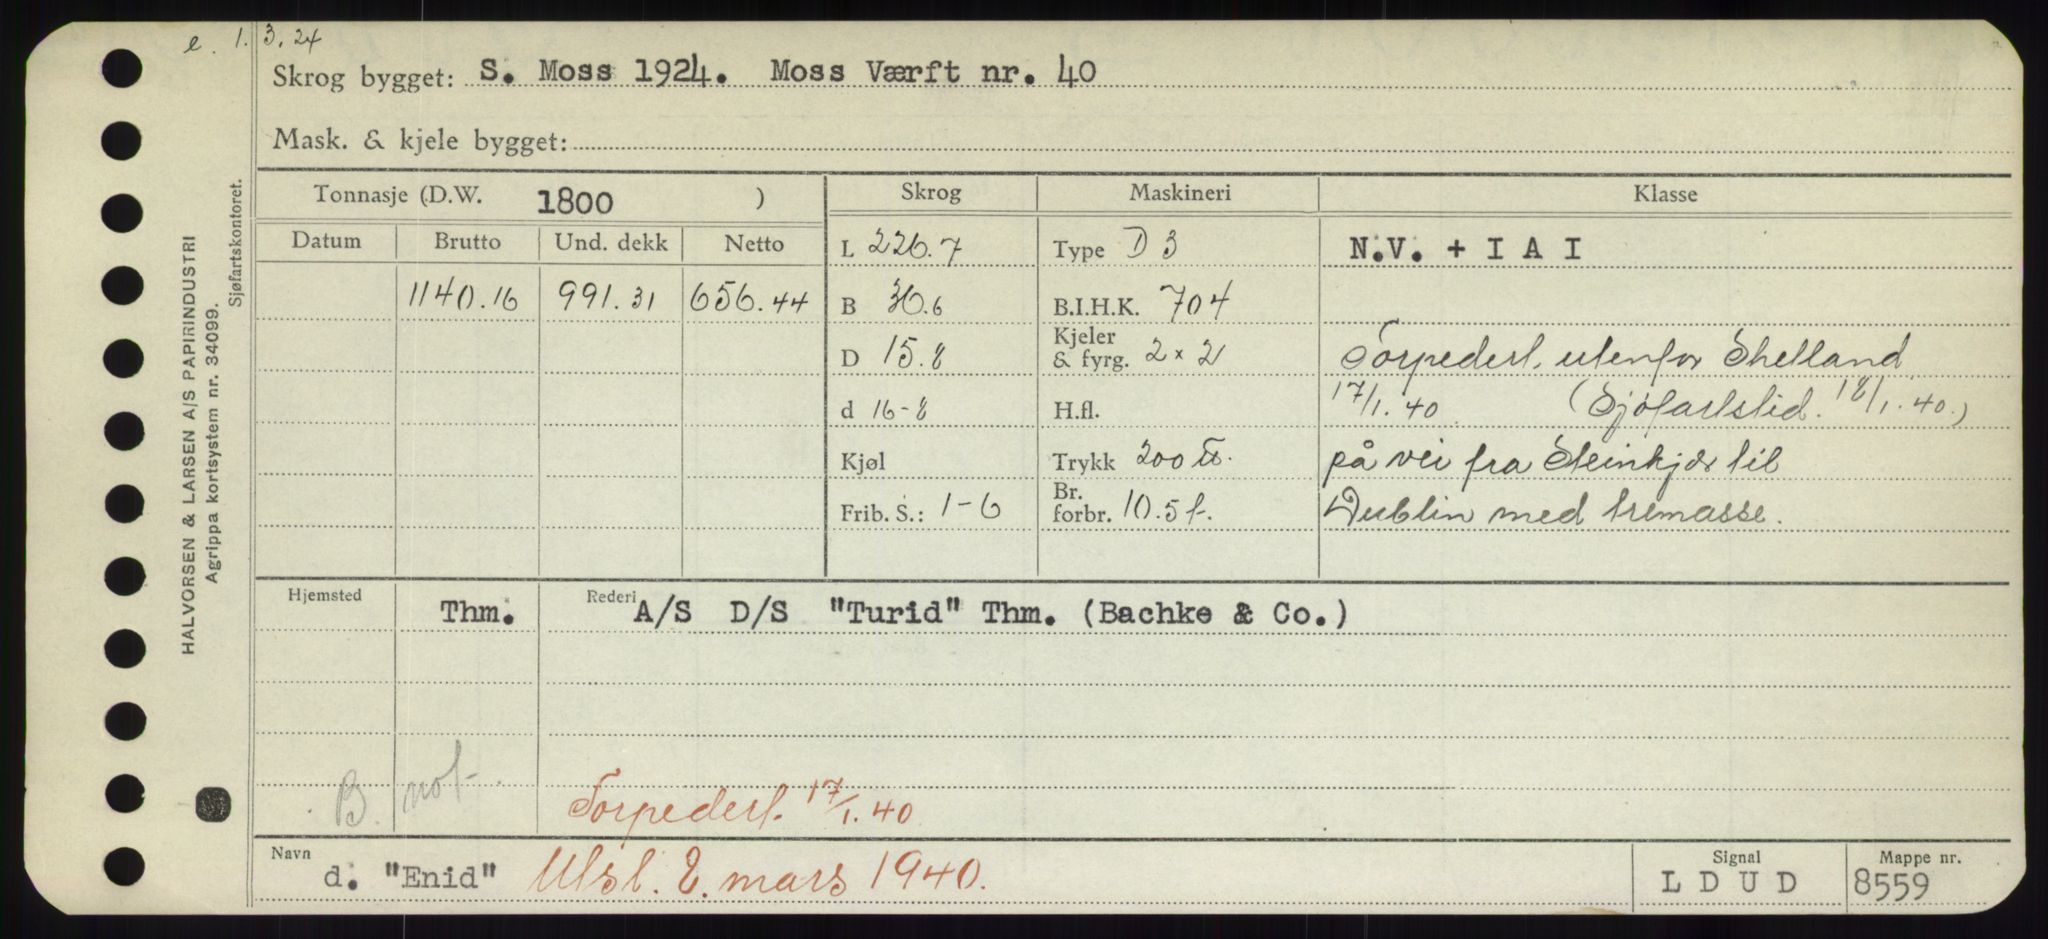 e. 1.3.24
Skrog bygget: S. Moss 1924. Moss Værft nr. 40
Mask. & kjele bygget:
HALVORSEN & LARSEN A/S PAPIRINDUSTRI
Agrippa kortsystem nr. 34099.
Sjøfartskontoret.
Tonnasje (D.W. 1800 ) Skrog Maskineri Klasse
Datum Brutto Und. dekk Netto L 226.7 Type D 3 N.V. + I A I
1140.16 991.31 656.44 B 36.6 B.I.H.K. 704
D 15.8 Kjeler & fyrg. 2 x 2 Torpedert. utenfor Shetland
d 16-8 H.fl. 17/1.40 (Sjøfartstid. 18/1.40.)
Kjøl Trykk 200 ℔. på vei fra Steinkjær til
Frib. S.: 1-6 Br. forbr. 10.5 t. Dublin med tremasse.
Hjemsted Thm. Rederi A/S D/S "Turid" Thm. (Bachke & Co.)
B. not.
Torpedert. 17/1.40
Navn d. "Enid" Utsl. 8. mars 1940. Signal L D U D Mappe nr. 8559